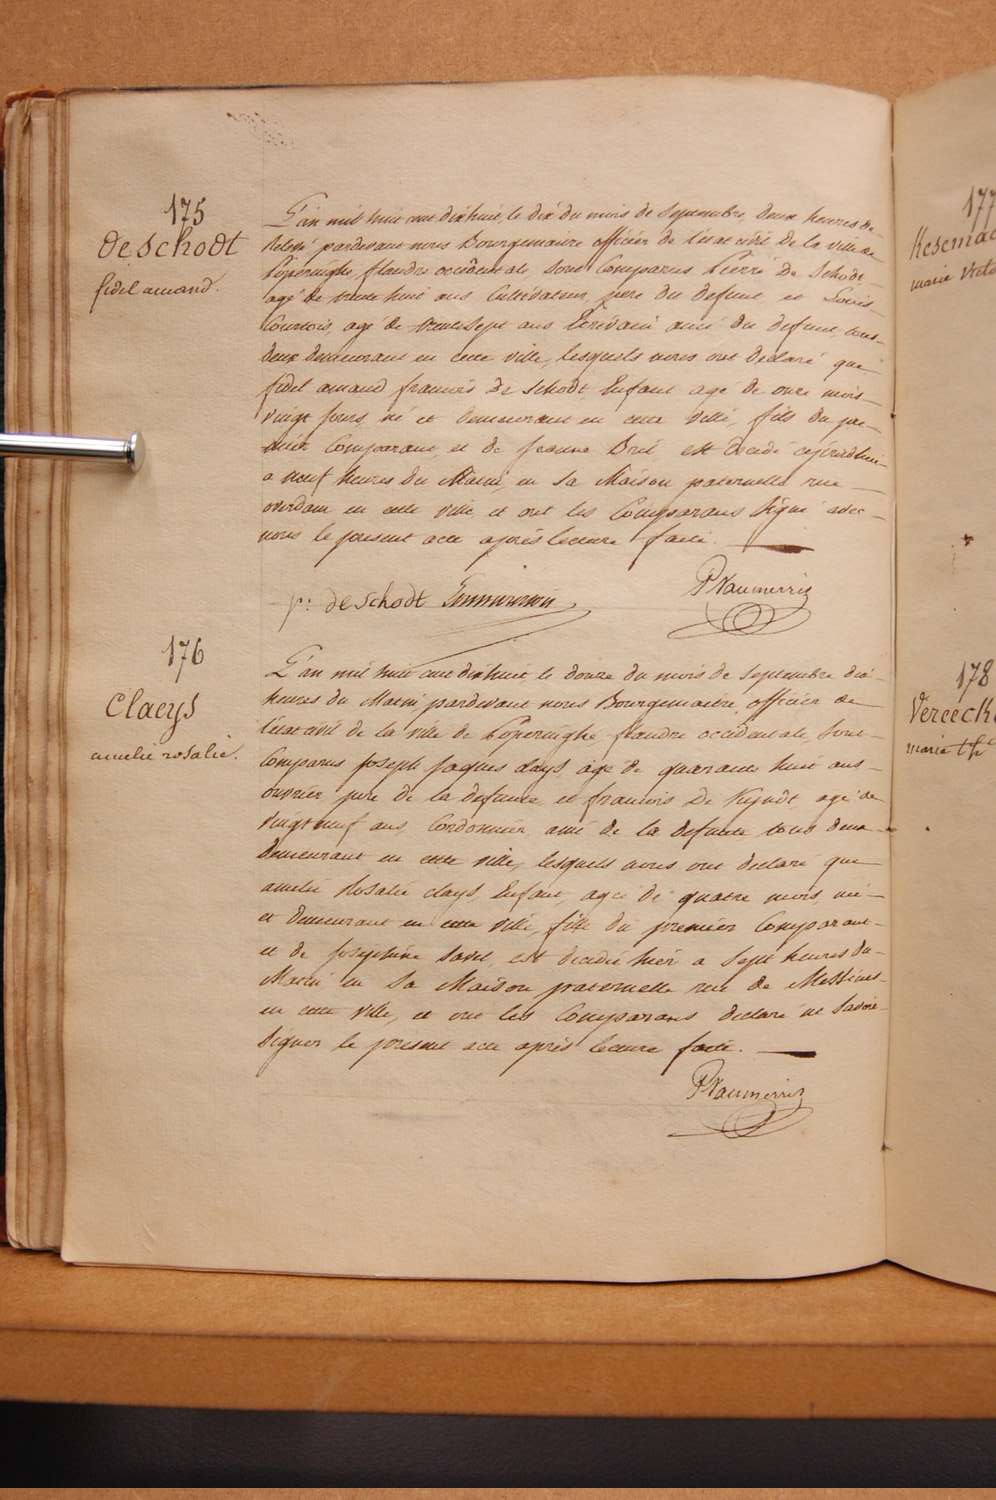 175
de schodt
fidel amand.
L'an mil huit cent dixhuit, le dix du mois de septembre, deux heures de
Relevé pardevant nous Bourguemaitre officier de l'état civil de la ville de
Poperinghe, flandre occidentale, sont Comparus Pierre De Schodt
agé de trente huit ans Cultivateur, pere du defunt et Louis
Courtois, agé de trentesept ans Ecrivain ami du defunt, tous
deux demeurant en cette ville, lesquels nous ont declaré que
fidel amand francois De Schodt, Enfant agé de onze mois
vingt jours, né et demeurant en cette ville, fils du pre-
mier Comparant, et de jeanne Bril est decedé cejourdhui
a neuf heures du Matin, en sa Maison paternelle rue
overdam en cette ville, et ont les Comparans signé avec
nous le present acte après lecture faite.
p: de schodt
PVanmerris
176
Claeys
amelie rosalie.
L'an mil huit cent dixhuit, le douze du mois de septembre dix
heures du Matin pardevant nous Bourguemaitre, officier de
l'état civil de la ville de Poperinghe, flandre occidentale, sont
Comparus joseph jaques clays, agé de quarante huit ans
ouvrier pere de la defunte, et francois De agé de
vingtneuf ans, Cordonnier, ami de la defunte tous deux
demeurant en cette ville, lesquels nous ont declaré que
amelie Rosalie clays, Enfant, agée de quatre mois, née
et demeurant en cette ville, fille du premier Comparant
et de josephine est decedée hier a sept heures du
Matin en sa Maison paternelle rue de Messines
en cette ville, et ont les Comparans declaré ne savoir
signer le present acte après lecture faite.
PVanmerris
177
marie
178
Vereeck
marie